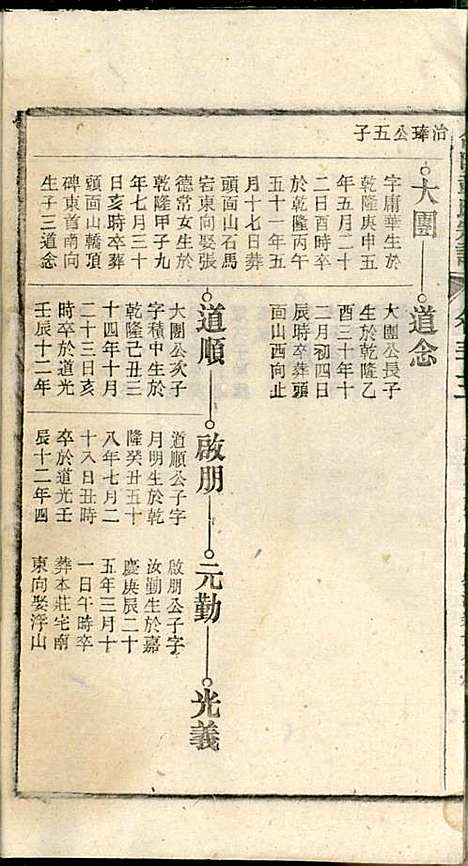 治璋公五子
大團
字庸華生於
乾隆庚申五
年五月二十
二日酉時卒
於乾隆丙午
五十一年五
月十七日葬
頭面山石馬
宕東向娶張
德常女生於
乾隆甲子九
年七月三十
日亥時卒葬
頭面山轎頂
碑東首南向
生子三道念
道念
大團公長子
生於乾隆乙
酉三十年十
二月初四日
辰時卒葬頭
面山西向止
道順
大團公次子
字積中生於
乾隆己丑三
十四年十月
二十三日亥
時卒於道光
壬辰十二年
啟朋
道順公子字
月明生於乾
隆癸丑五十
八年七月二
十八日丑時
卒於道光壬
辰十二年四
元勤
啟朋公子字
汝勤生於嘉
慶庚辰二十
五年三月十
一日午時卒
葬本莊宅南
東向娶浮山
光義